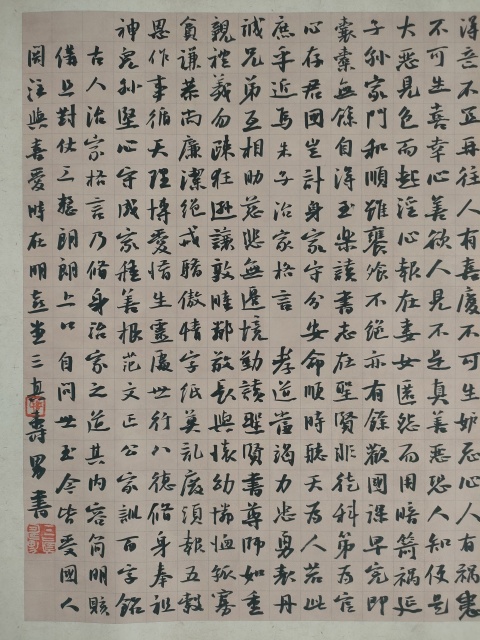 得意不宜再往人有喜慶不可生妒忌心人有禍患
不可生喜幸心善欲人見不是真善惡恐人知便是
大惡見色而起淫心報在妻女匿怨而用暗箭禍延
子孫家門和順雖饔飧不繼亦有餘歡國課早完即
囊橐無餘自得至樂讀書志在聖賢非徒科第為官
心存君國豈計身家守分安命順時聽天為人若此
庶乎近焉朱子治家格言 孝道當竭力忠勇表丹
誠兄弟互相助慈悲無邊境勤讀聖賢書尊師如重
親禮義勿疎狂遜讓敦睦鄰敬長與懷幼憐恤孤寡
貧謙恭尚廉潔絕戒驕傲情字紙莫亂廢須報五穀
恩作事循天理博愛惜生靈處世行八德修身奉祖
神兒孫堅心守成家種善根范文正公家訓百字銘
古人治家格言乃修身治家之道其内容簡明賅
備且對仗工整朗朗上口自問世至今皆受國人
関注與喜愛時在明堂三壽男書